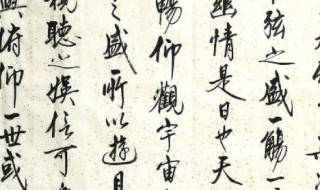 弦之盛一觴一
幽情是日也天
暢仰觀宇宙
之盛所以遊目
視聽之娛信可
與俯仰一世或